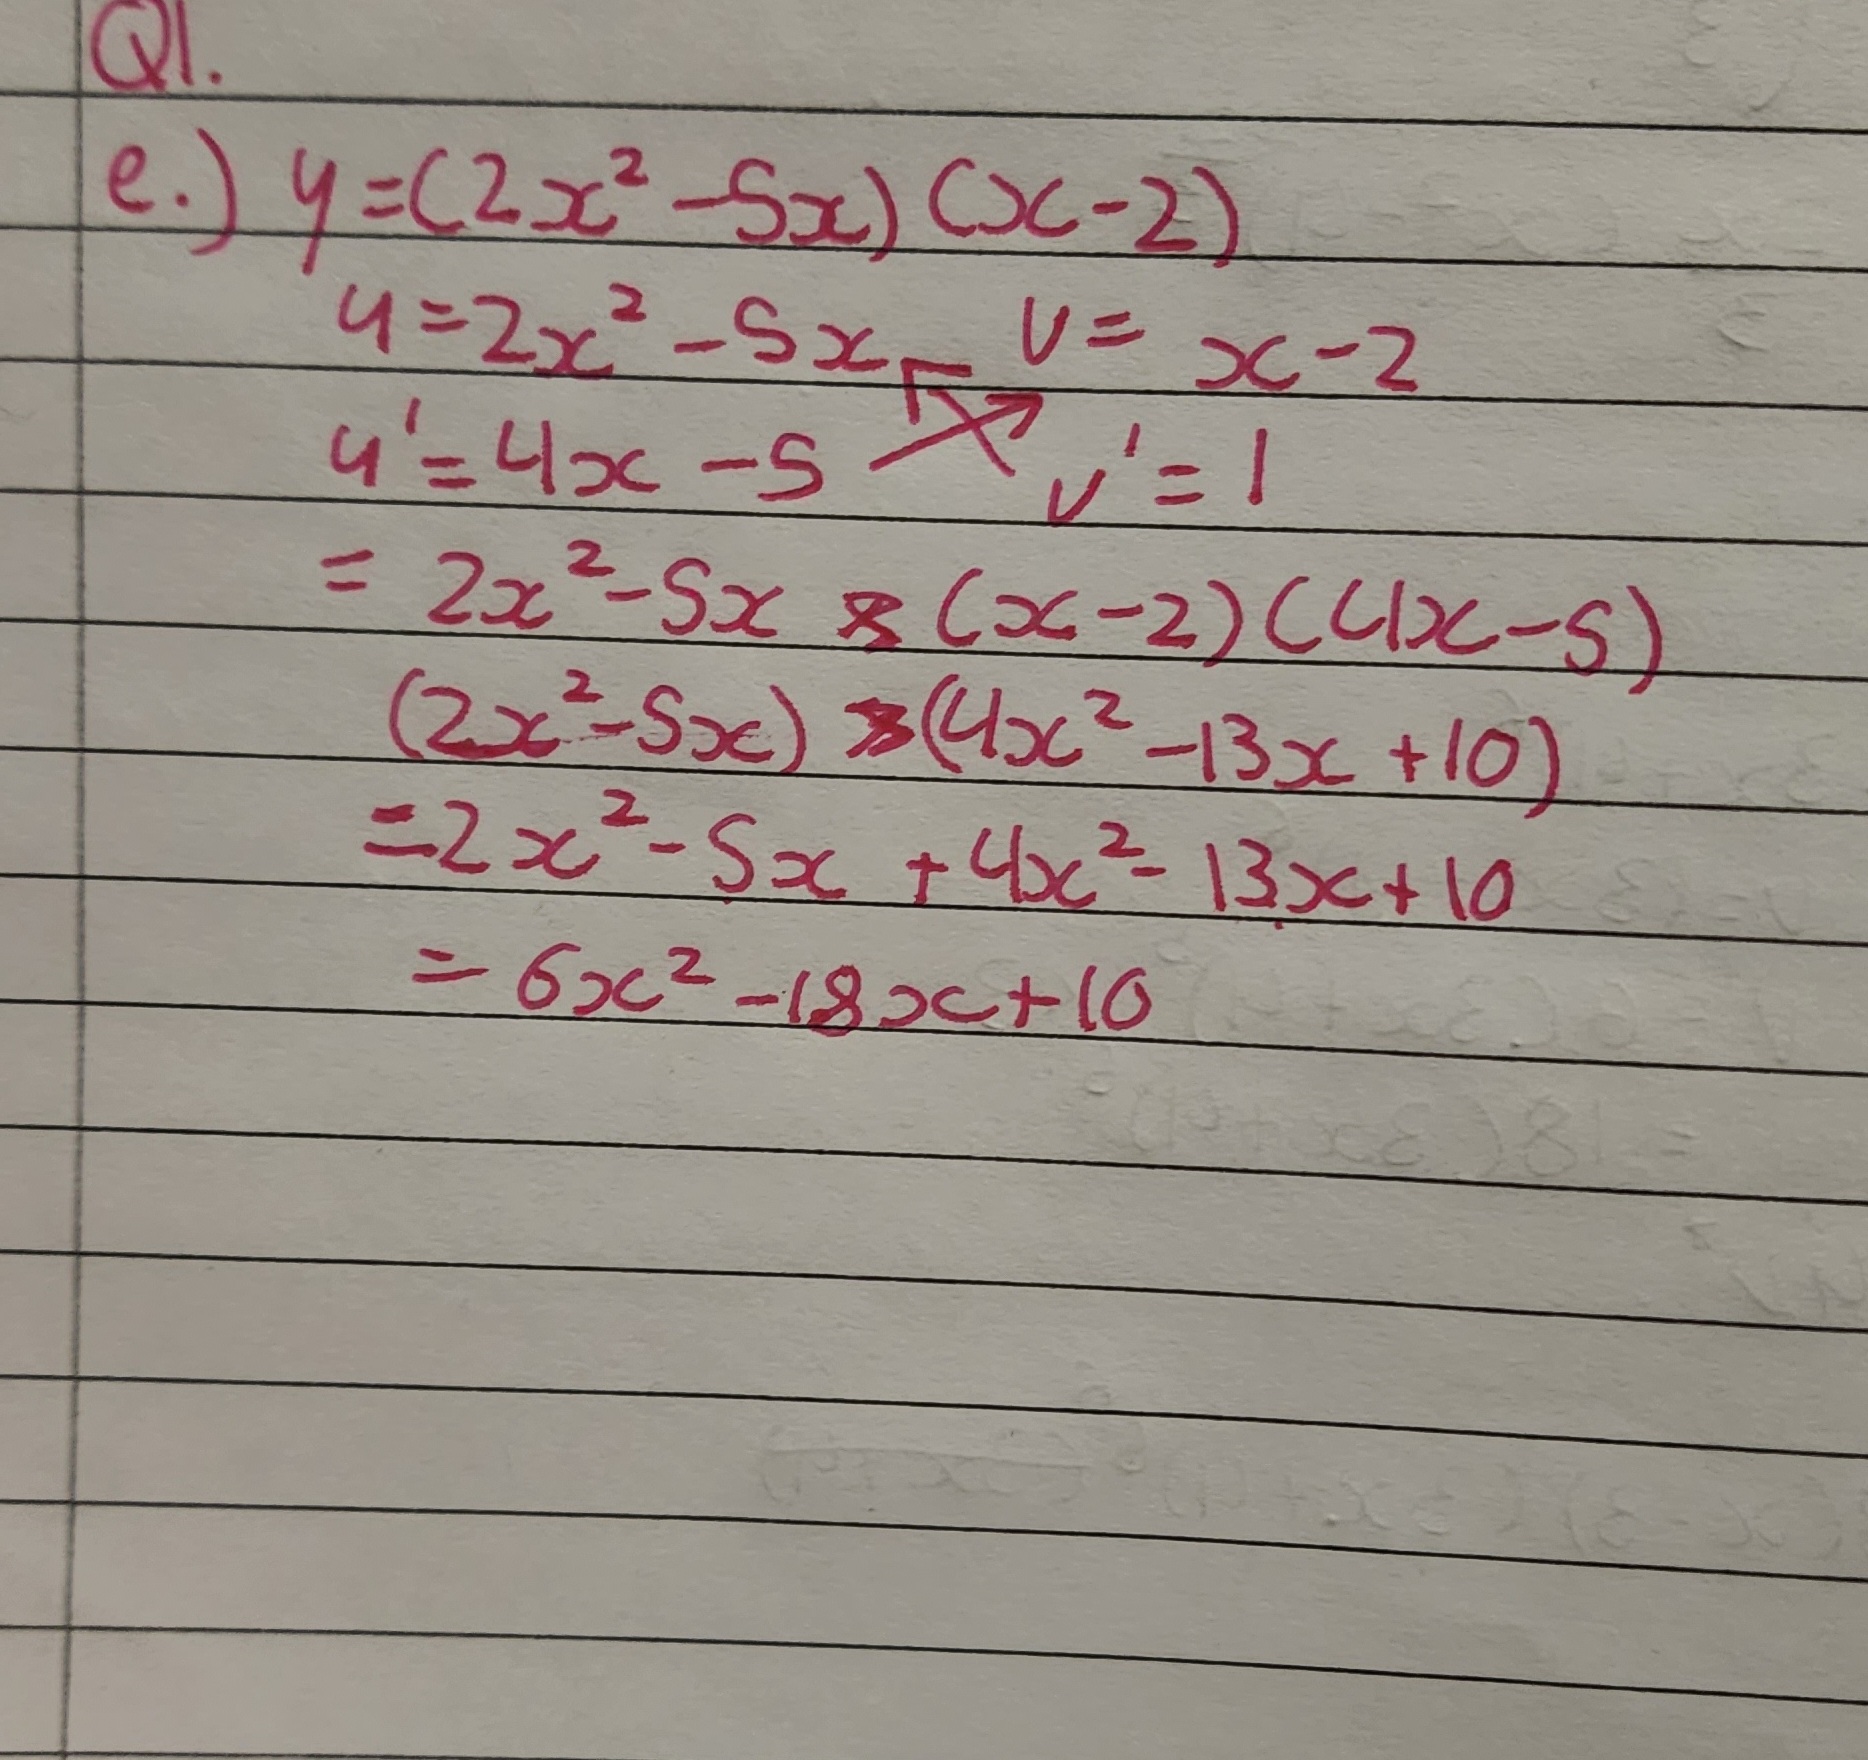 Q1.
e.) y=(2x² -5x)(x-2)
u=2x² -5x v= x-2
u'=4x -5 v'=1
= 2x²-5x (x-2)(4x-5)
(2x²-5x) (4x² -13x +10)
=2x²-5x +4x²- 13x+10
= 6x² -18x+10